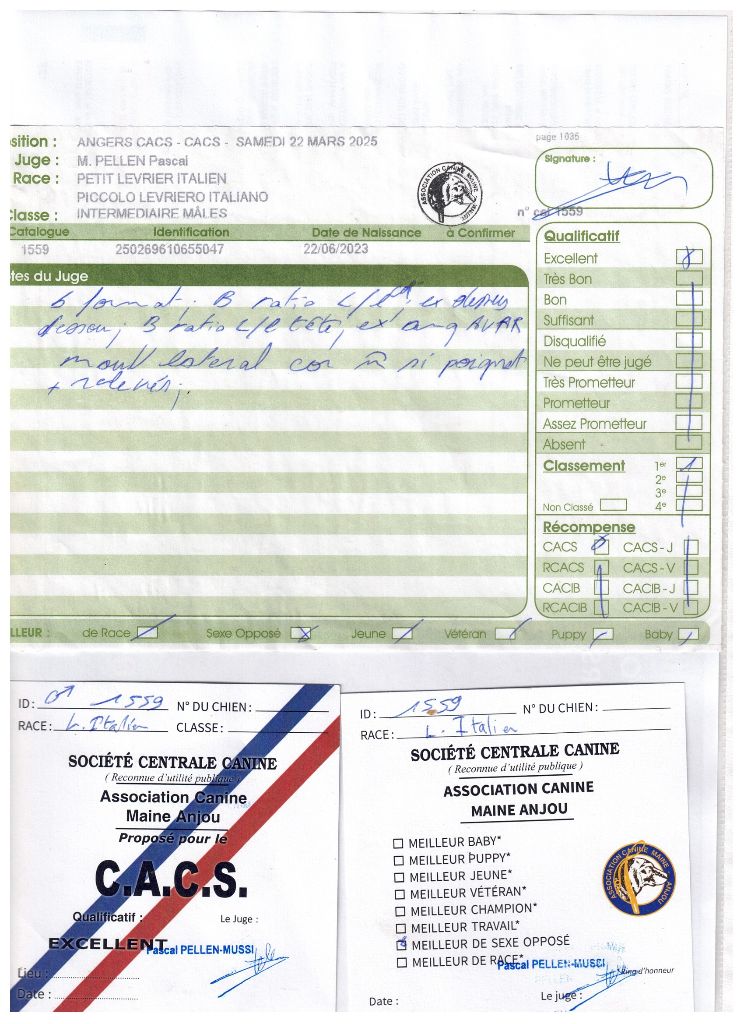 page 1035
sition : ANGERS CACS - CACS - SAMEDI 22 MARS 2025
Juge : M. PELLEN Pascal
Race : PETIT LEVRIER ITALIEN
PICCOLO LEVRIERO ITALIANO
Classe : INTERMEDIAIRE MÂLES
ASSOCIATION CANINE MAINE ANJOU
Signature :
n° cat 1559
Catalogue Identification Date de Naissance à Confirmer
1559 250269610655047 22/06/2023
tes du Juge
b format; B ratio L/l ex dessus
dessou; B ratio L/l tête, ex ang AVAR
mouv lateral cor si poignet
+ relevés;
Qualificatif
Excellent
Très Bon
Bon
Suffisant
Disqualifié
Ne peut être jugé
Très Prometteur
Prometteur
Assez Prometteur
Absent
Classement 1er
2e
3e
Non Classé 4e
Récompense
CACS CACS - J
RCACS CACS - V
CACIB CACIB - J
RCACIB CACIB - V
LLEUR : de Race Sexe Opposé Jeune Vétéran Puppy Baby
ID : ♂ 1559 N° DU CHIEN :
RACE : L. Italien CLASSE :
SOCIÉTÉ CENTRALE CANINE
( Reconnue d'utilité publique )
Association Canine
Maine Anjou
Proposé pour le
C.A.C.S.
Qualificatif : Le Juge :
EXCELLENT Pascal PELLEN-MUSSI
Lieu :
Date :
ID : 1559 N° DU CHIEN :
RACE : L. Italien
SOCIÉTÉ CENTRALE CANINE
( Reconnue d'utilité publique )
ASSOCIATION CANINE
MAINE ANJOU
MEILLEUR BABY*
MEILLEUR PUPPY*
MEILLEUR JEUNE*
MEILLEUR VÉTÉRAN*
MEILLEUR CHAMPION*
MEILLEUR TRAVAIL*
MEILLEUR DE SEXE OPPOSÉ
MEILLEUR DE RACE*
ASSOCIATION CANINE MAINE ANJOU
Pascal PELLEN-MUSSI
*Ring d'honneur
Date : Le juge :